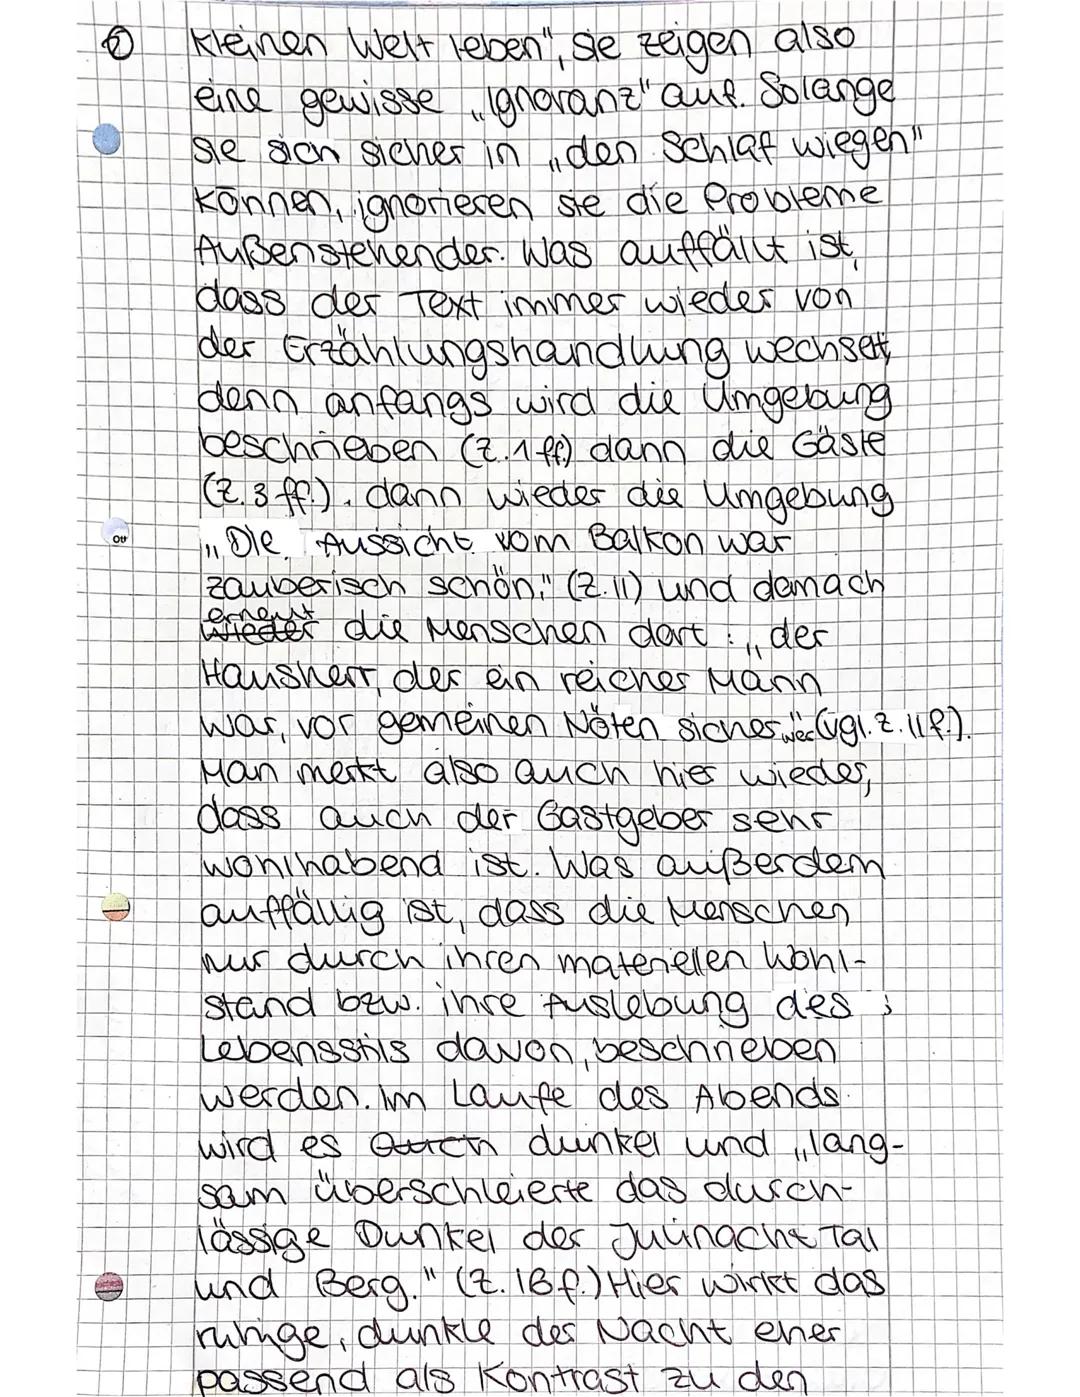 ② kleinen Welt leben", sie zeigen also
eine gewisse „Ignoranz" auf. Solange
sie sich sicher in „den Schlaf wiegen"
können, ignorieren sie die Probleme
Außenstehender. Was auffällt ist,
dass der Text immer wieder von
der Erzählungshandlung wechselt,
denn anfangs wird die Umgebung
beschrieben (Z.1ff) dann die Gäste
(Z.3ff.), dann wieder die Umgebung
„Die Aussicht vom Balkon war
zauberisch schön;" (Z.11) und danach
erneut
wieder die Menschen dort: „der
Hausherr, der ein reicher Mann
war, vor gemeinen Nöten sicher" war (vgl. Z.11f.).
Man merkt also auch hier wieder,
dass auch der Gastgeber sehr
wohlhabend ist. Was außerdem
auffällig ist, dass die Menschen
nur durch ihren materiellen Wohl-
stand bzw. ihre Auslebung des
Lebensstils davon, beschrieben
werden. Im Laufe des Abends
wird es dunkel und „lang-
sam überschleierte das durch-
lässige Dunkel der Julinacht Tal
und Berg." (Z.18f.) Hier wirkt das
ruhige, dunkle der Nacht eher
passend als Kontrast zu den
Ott